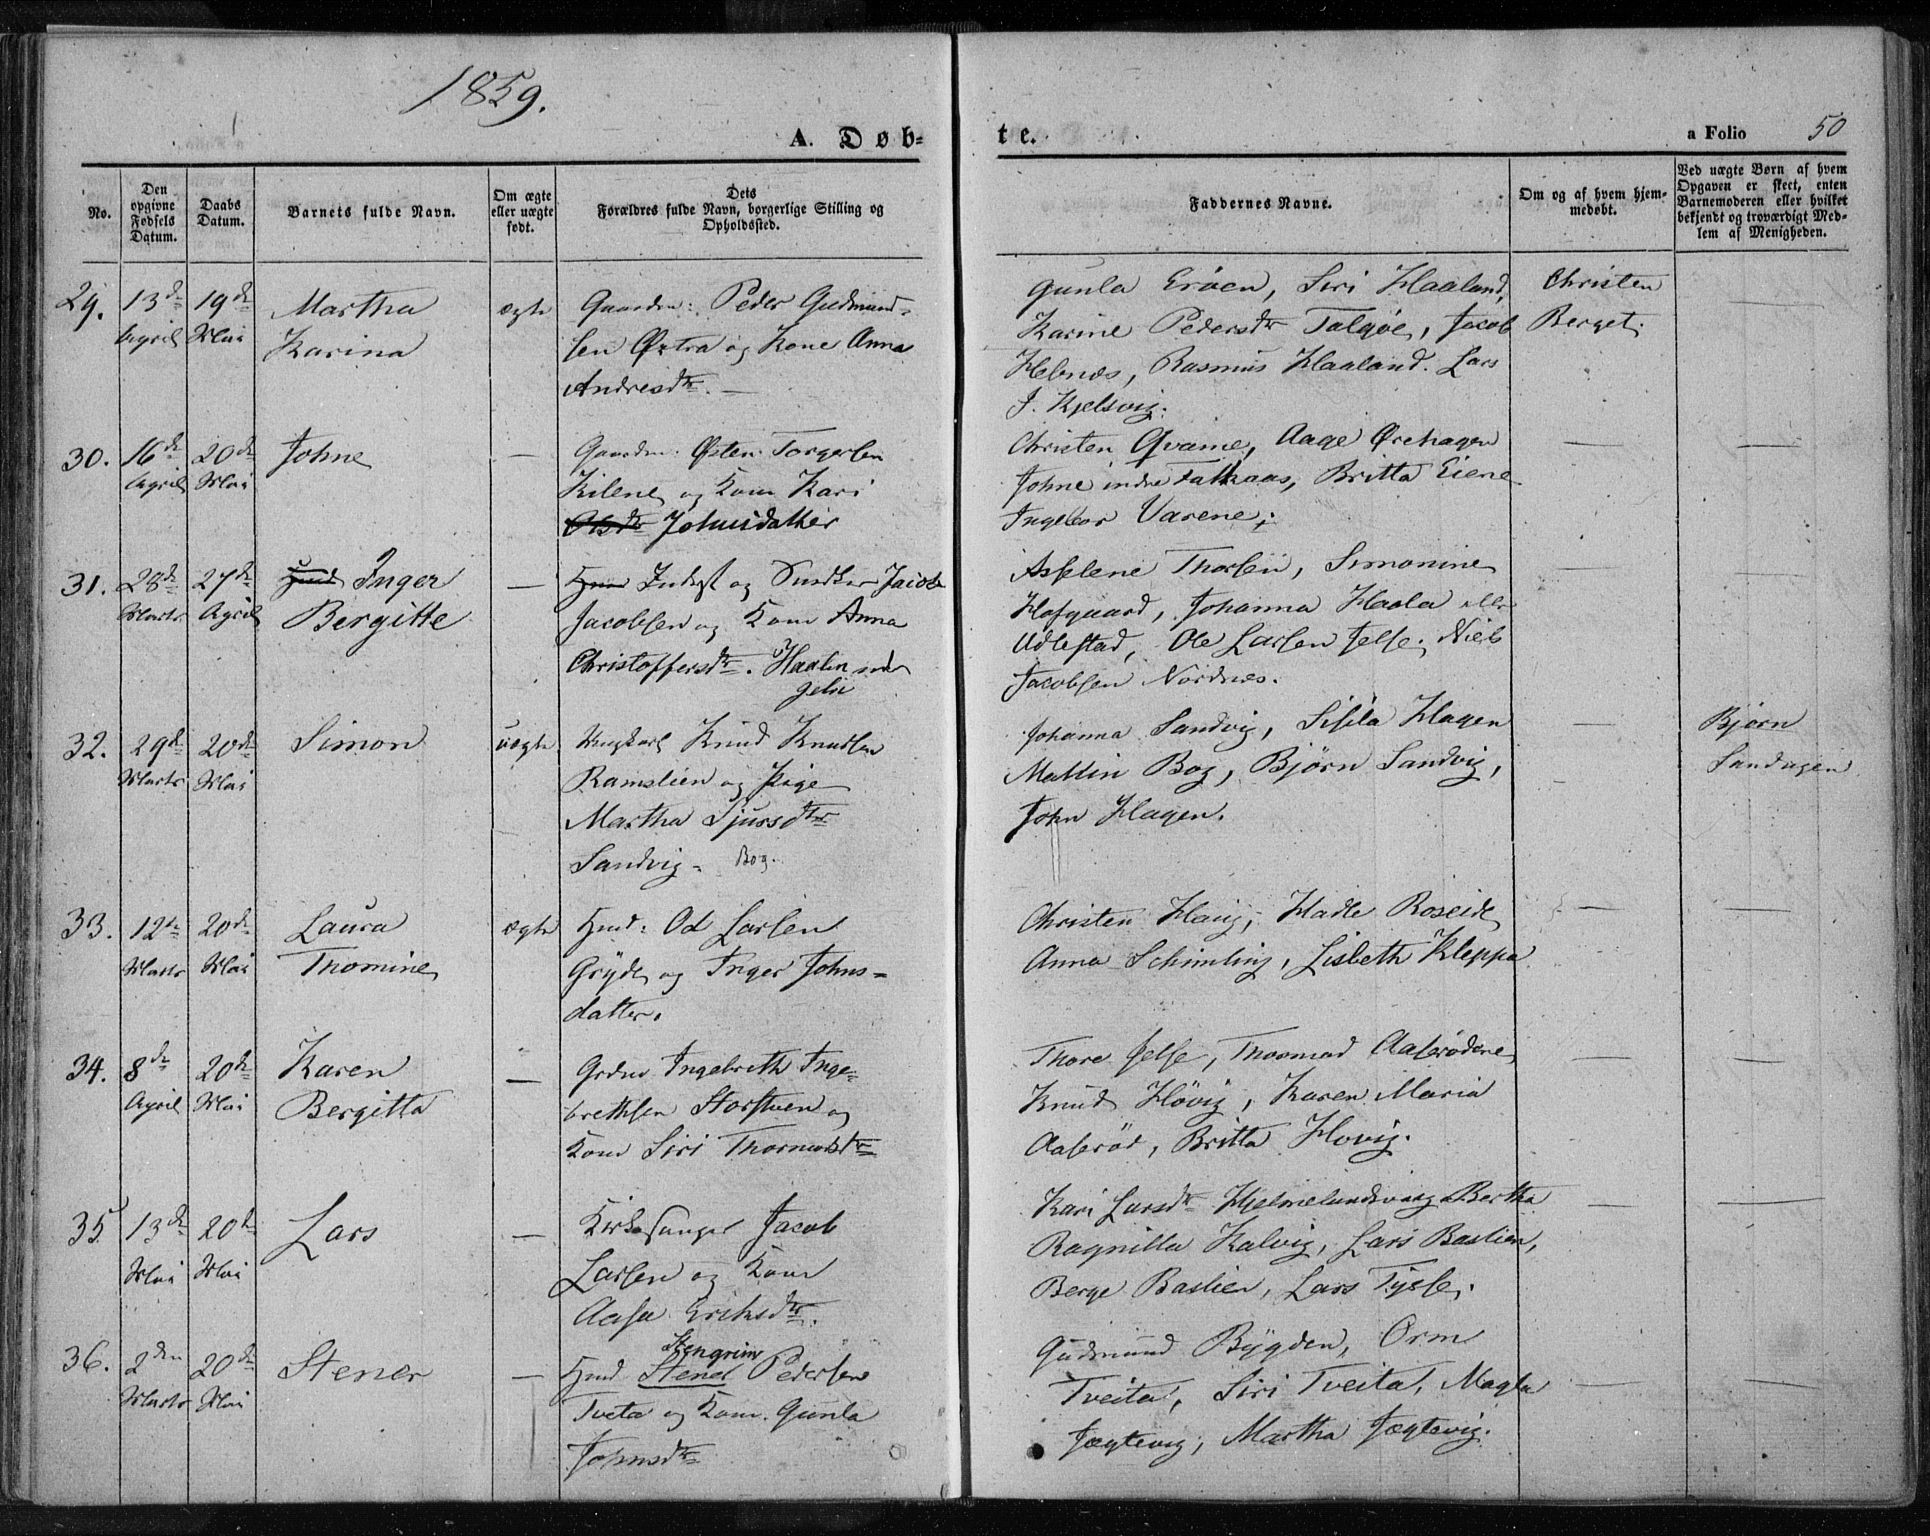 1859.
A. Døb-
te.
a Folio 50
No.
Den opgivne Fødsels Datum.
Daabs Datum.
Barnets fulde Navn.
Om ægte eller uægte født.
Dets Forældres fulde Navn, borgerlige Stilling og Opholdssted.
Faddernes Navne.
Om og af hvem hjemmedøbt.
Ved uægte Børn af hvem Opgaven er skeet, enten Barnemoderen eller hvilket bekjendt og troværdigt Medlem af Menigheden.
29. 13de April 19de Mai
Martha
Karina
ægte
Gaardm: Peder Gudmund-
sen Østra og Kone Anna
Andresdtr. —
Gunla Erøen, Siri Haaland,
Karine Pedersdtr Talgøe, Jacob
Helnæs, Rasmus Haaland. Lars
J. Kjelsvig.
Christen
Berget.
30. 16de April 20de Mai
Johne
—
Gaardm: Østen Torgersen
Kilene og Kone Kari
Olsdtr Johnsdatter
Christen Qvame, Aage Ørehagen
Johne indre Falkaas, Britta Eiene
Ingebor Varene,
31. 28de Marts 27de April
Inger
Bergitte
—
Inderst og Snedker Jacob
Jacobsen og Kone Anna
Christoffersdtr. Haalan
Asselene Thorsen, Simonine
Hofgaard, Johanna Haala eller
Udlestad, Ole Larsen Jelse, Niels
Jacobsen Nordnæs.
32. 29de Marts 20de Mai
Simon
uægte
Ungkarl Knud Knudsen
Ramslien og Pige
Martha Sjursdtr
Sandvig - Bog.
Johanna Sandvig, Sisila Hagen
Mallin Bog, Bjørn Sandvig,
John Hagen.
Bjørn
Sandvigen
33. 12te Marts 20de Mai
Laura
Thomine
ægte
Hmd: Od Larsen
Gryde og Inger Johns-
datter.
Christen Havig, Hadle Roseide
Anna Schimling, Lisbeth Kleppa
34. 8de April 20de Mai
Karen
Bergitta
—
Grdm Ingebreth Inge-
brethsen Storstuen og
Kone Siri Thormodsdtr
Thore Jelse, Thormod Aaserødene
Knud Høvig, Karen Maria
Aaserød, Britta Hovig.
35 13de Mai 20de Mai
Lars
—
Kirkesanger Jacob
Larsen og Kone
Aasa Eriksdtr.
Kari Larsdtr Hjelmelandsvaag Bertha
Ragnilla Kalvig, Lars Bastien,
Berge Bastien, Lars Tysse.
36. 2den Marts 20de Mai
Stener
—
Stengrim
Hmd Stenel Pedersen
Tveta og Kone Gunla
Johnsdtr
Gudmund Bygden, Orm
Tveita, Siri Tveita, Magla
Jægtevig, Martha Jægtevig.